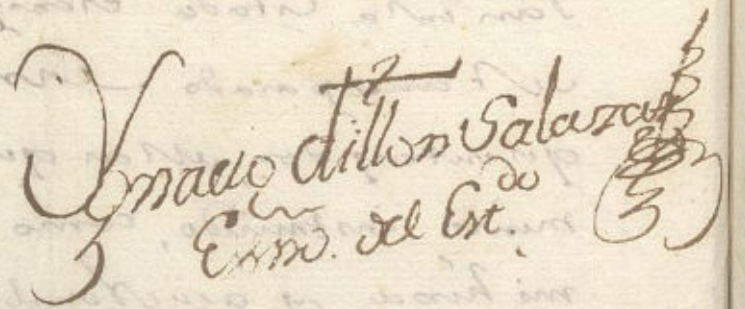 Ygnacio dillon Salazar
Esno. del Estdo.